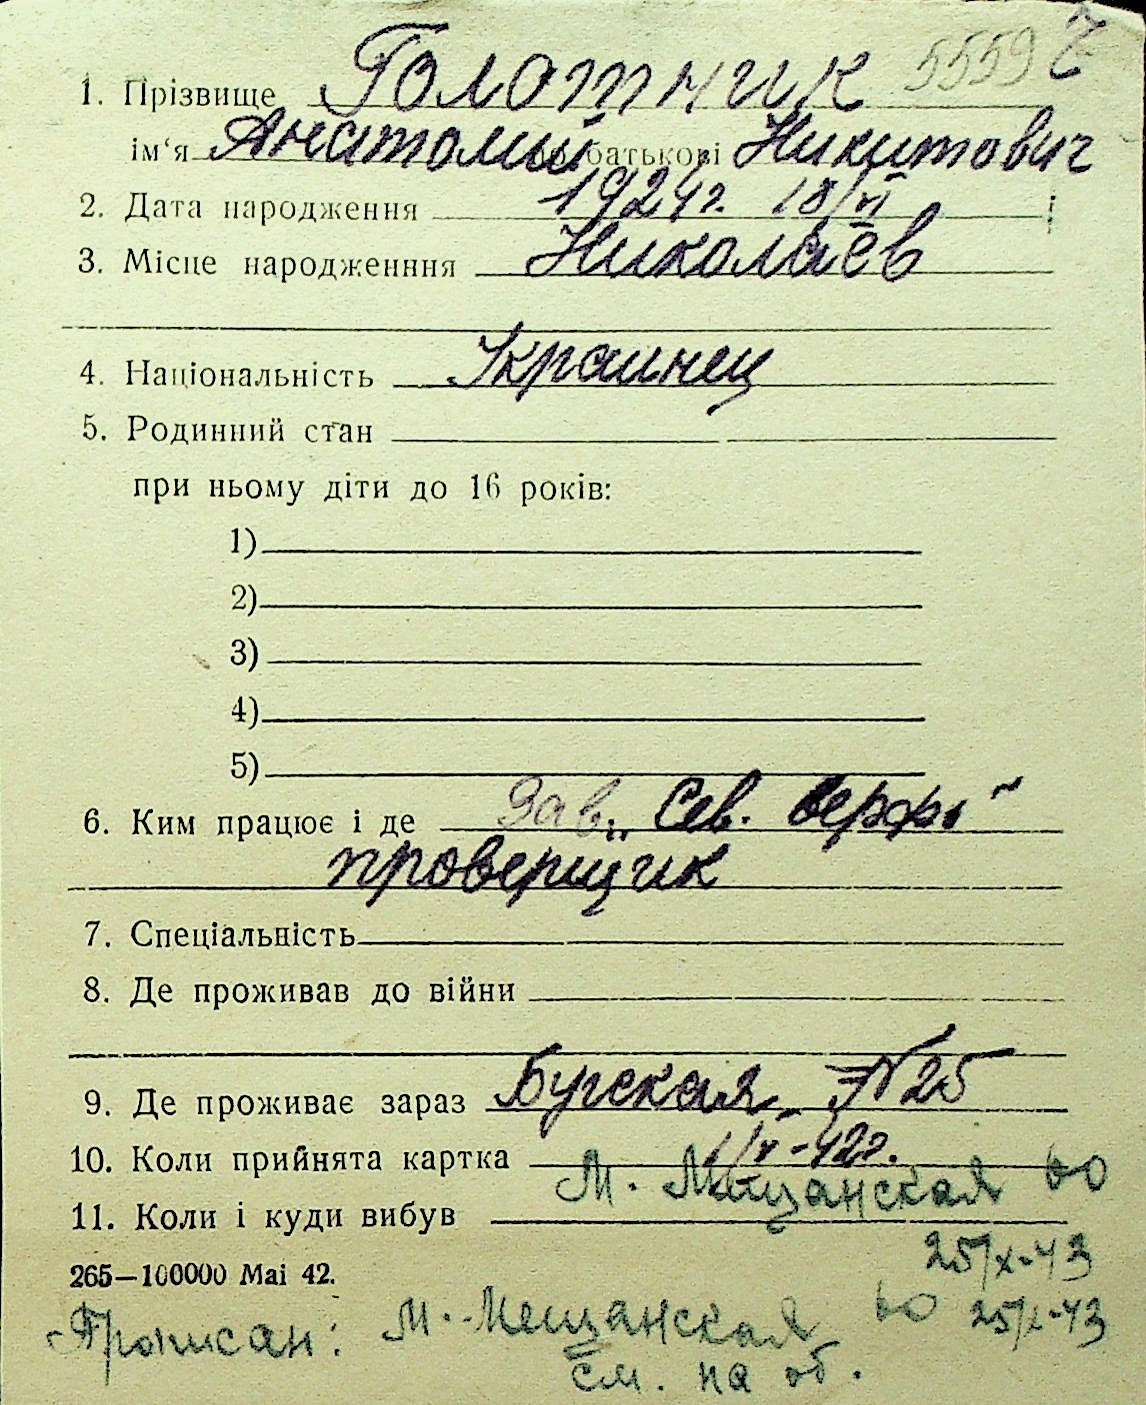 5559
1. Прізвище Голотник
ім‘я Анатолий по батькові Никитович
2. Дата народження 1924г. 18/VI
3. Місце народженння Николаев
4. Національність Украинец
5. Родинний стан
при ньому діти до 16 років:
1)
2)
3)
4)
5)
6. Ким працює і де Зав. „Сев. верфь“
проверщик
7. Спеціальність
8. Де проживав до війни
9. Де проживає зараз Бугская, №25
10. Коли прийнята картка -42г.
М. Мещанская 60
11. Коли і куди вибув
25/X-43
265—100000 Mai 42.
Прописан: М. Мещанская 60 25/X-43
см. на об.